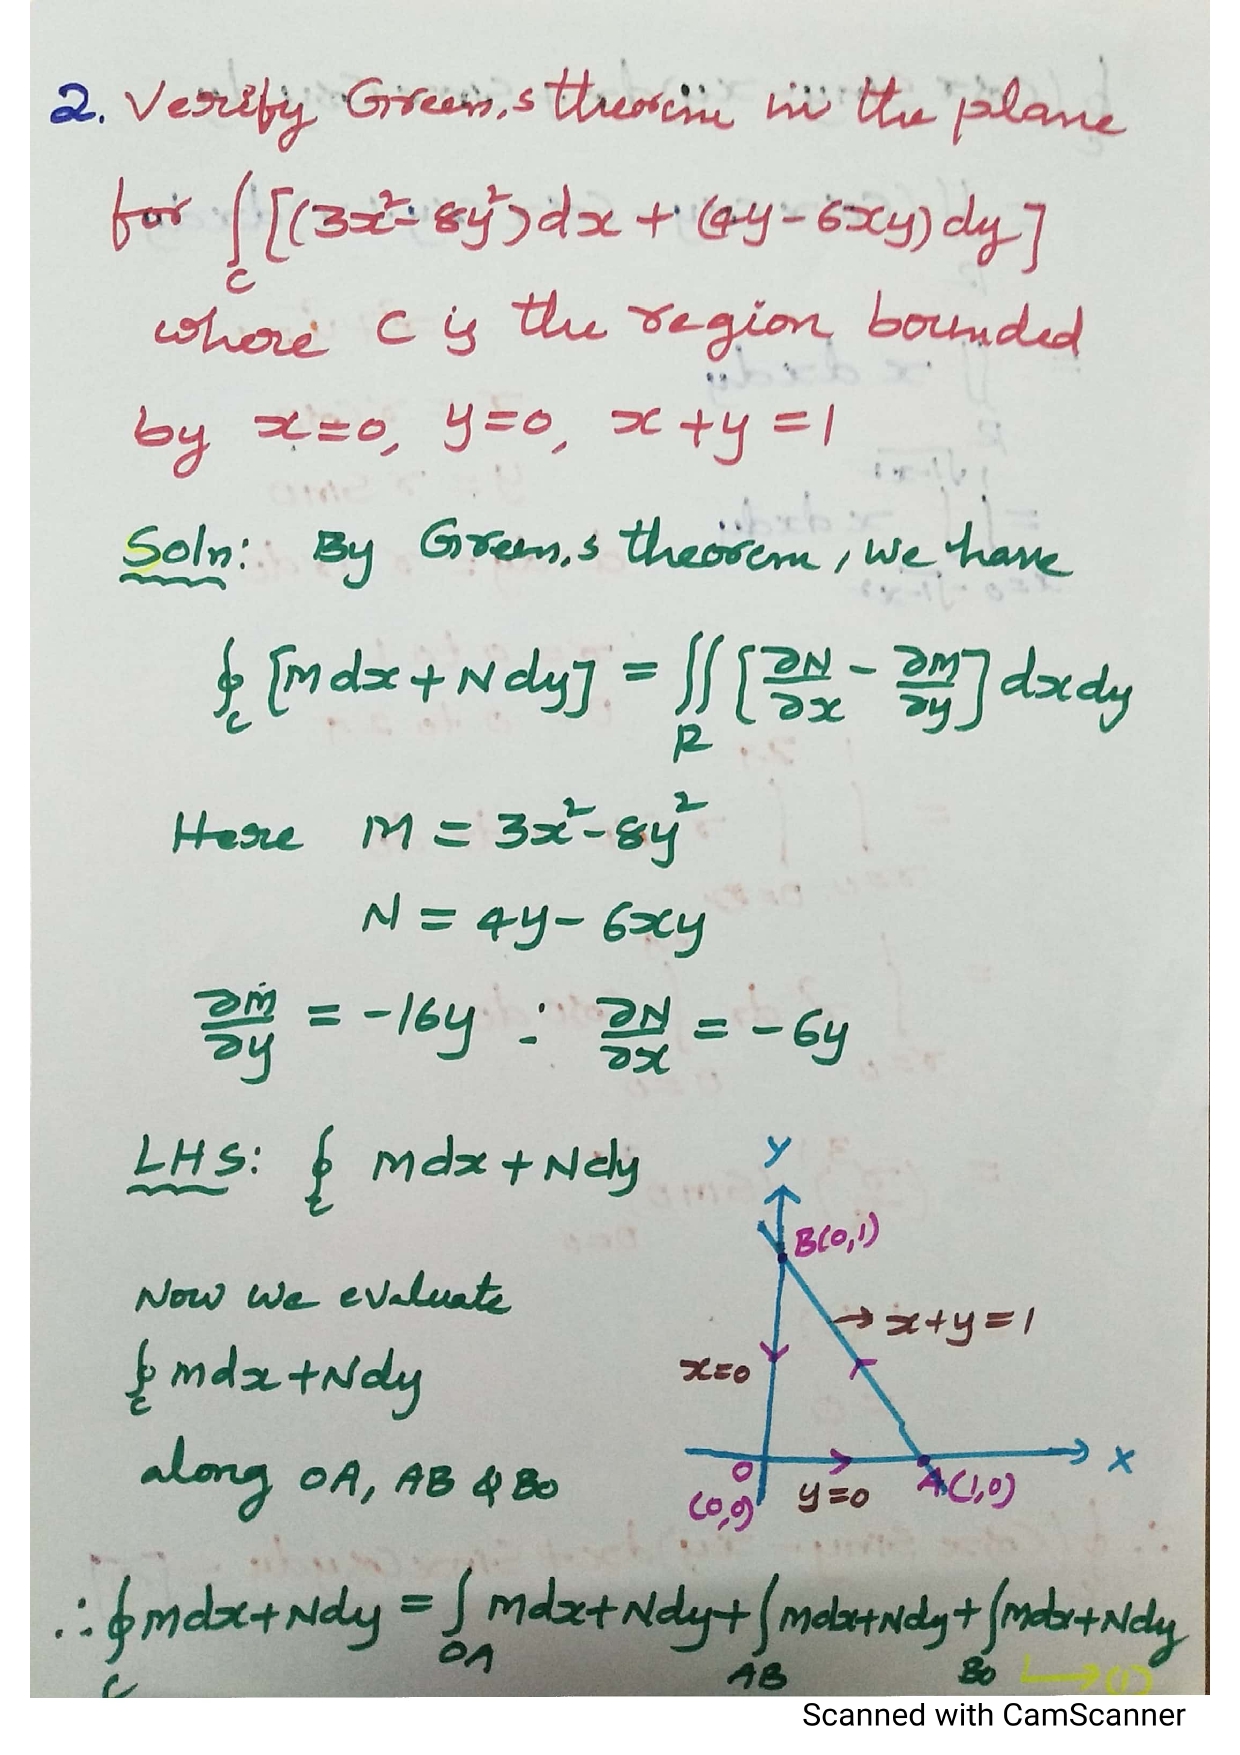 2. Verify Green,s theorem in the plane
for ∫_C [(3x²-8y²)dx + (4y-6xy)dy]
where C is the region bounded
by x=0, y=0, x+y=1
Soln: By Green,s theorem, we have
∮_C [Mdx+Ndy] = ∬_R [∂N/∂x - ∂M/∂y] dxdy
Here M = 3x²-8y²
N = 4y-6xy
∂M/∂y = -16y ∵ ∂N/∂x = -6y
LHS: ∮_C Mdx+Ndy
Y
B(0,1)
Now we evaluate
→ x+y=1
∮_C Mdx+Ndy
x=0
along OA, AB & BO
O
(0,0)
y=0
A(1,0)
X
∴ ∮_C Mdx+Ndy = ∫_OA Mdx+Ndy + ∫_AB Mdx+Ndy + ∫_BO Mdx+Ndy
→(1)
Scanned with CamScanner